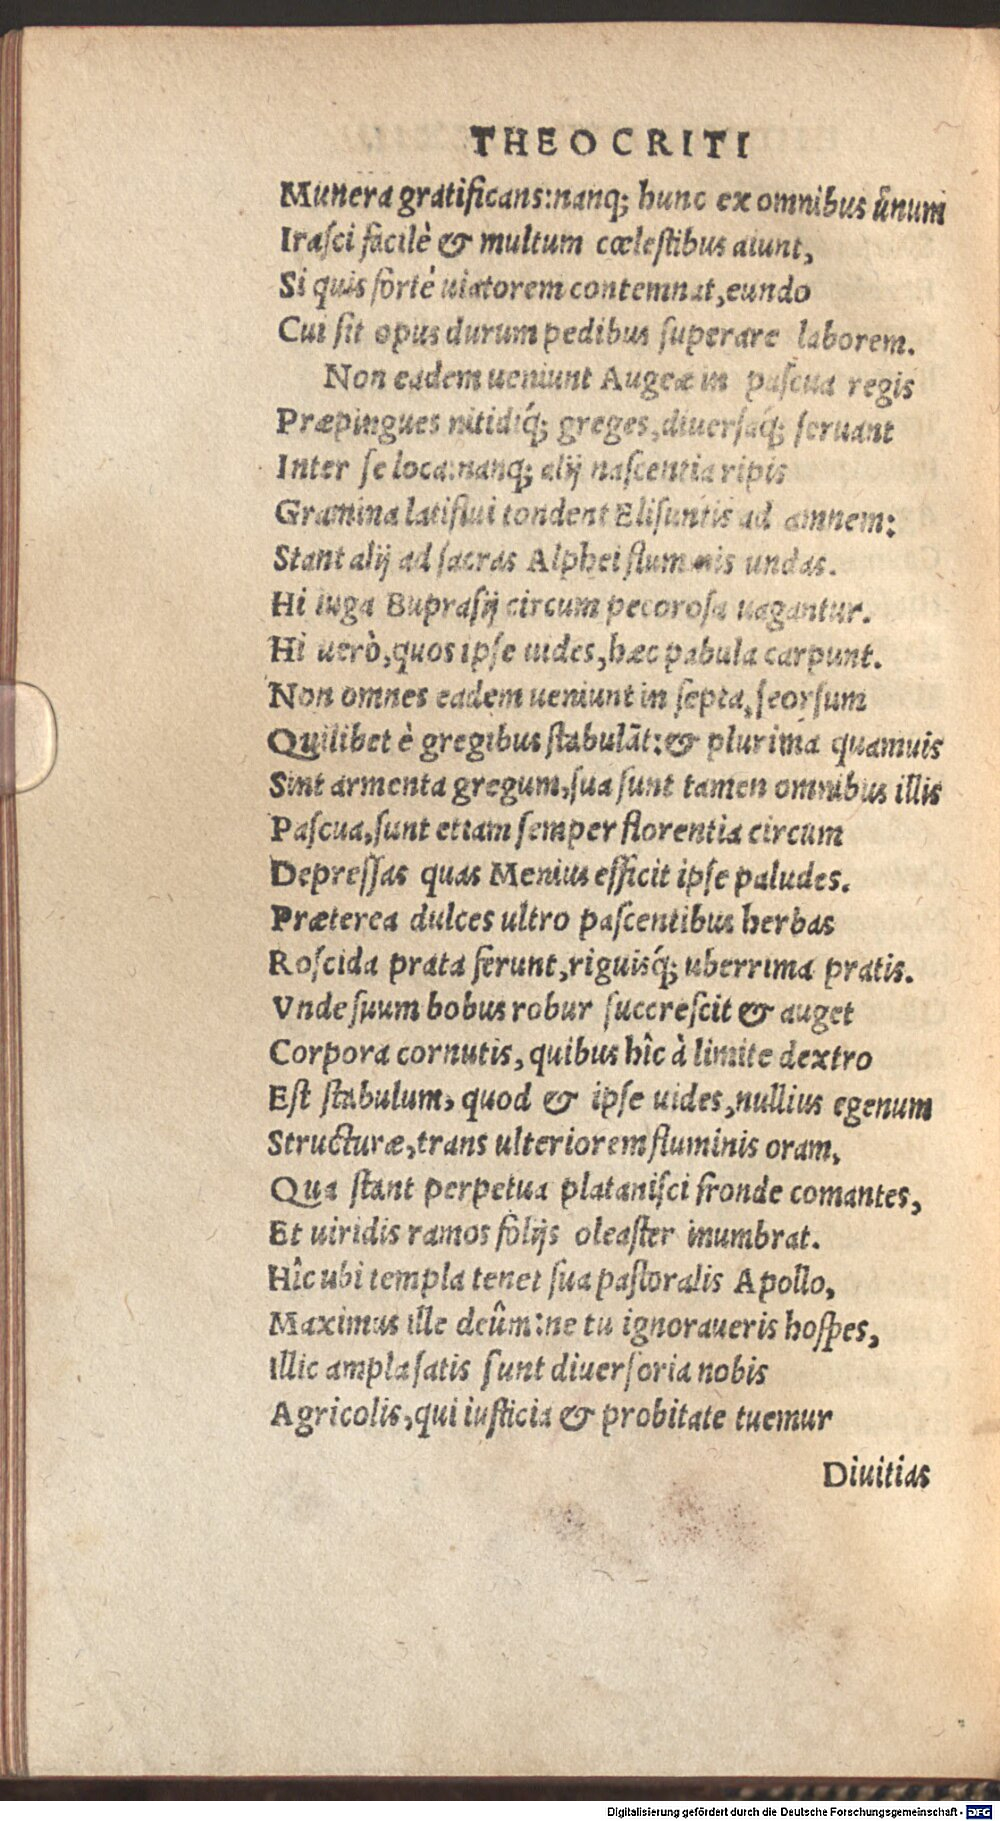 THEOCRITI
Munera gratificans:nanq; hunc ex omnibus ũnum
Iraſci facilè & multum cœleſtibus aiunt,
Si quis fortè uiatorem contemnat,eundo
Cui ſit opus durum pedibus ſuperare laborem.
Non eadem ueniunt Augeæ in paſcua regis
Præpingues nitidiq́; greges,diuerſaq́; ſeruant
Inter ſe loca:nanq; alij naſcentia ripis
Gramina latiflui tondent Eliſuntis ad amnem:
Stant alij ad ſacras Alphei fluminis undas.
Hi iuga Bupraſij circum pecoroſa uagantur.
Hi uerò,quos ipſe uides,hæc pabula carpunt.
Non omnes eadem ueniunt in ſepta,ſeorſum
Quilibet è gregibus ſtabulãt:& plurima quamuis
Sint armenta gregum,ſua ſunt tamen omnibus illis
Paſcua,ſunt etiam ſemper florentia circum
Depreſſas quas Menius efficit ipſe paludes.
Præterea dulces ultro paſcentibus herbas
Roſcida prata ferunt,riguisq́; uberrima pratis.
Vnde ſuum bobus robur ſuccreſcit & auget
Corpora cornutis, quibus hîc à limite dextro
Eſt ſtabulum, quod & ipſe uides,nullius egenum
Structuræ,trans ulteriorem fluminis oram,
Qua ſtant perpetua plataniſci fronde comantes,
Et uiridis ramos folijs oleaſter inumbrat.
Hîc ubi templa tenet ſua paſtoralis Apollo,
Maximus ille deûm:ne tu ignoraueris hoſpes,
Illic ampla ſatis ſunt diuerſoria nobis
Agricolis,qui iuſticia & probitate tuemur
Diuitias
Digitalisierung gefördert durch die Deutsche Forschungsgemeinschaft - DFG